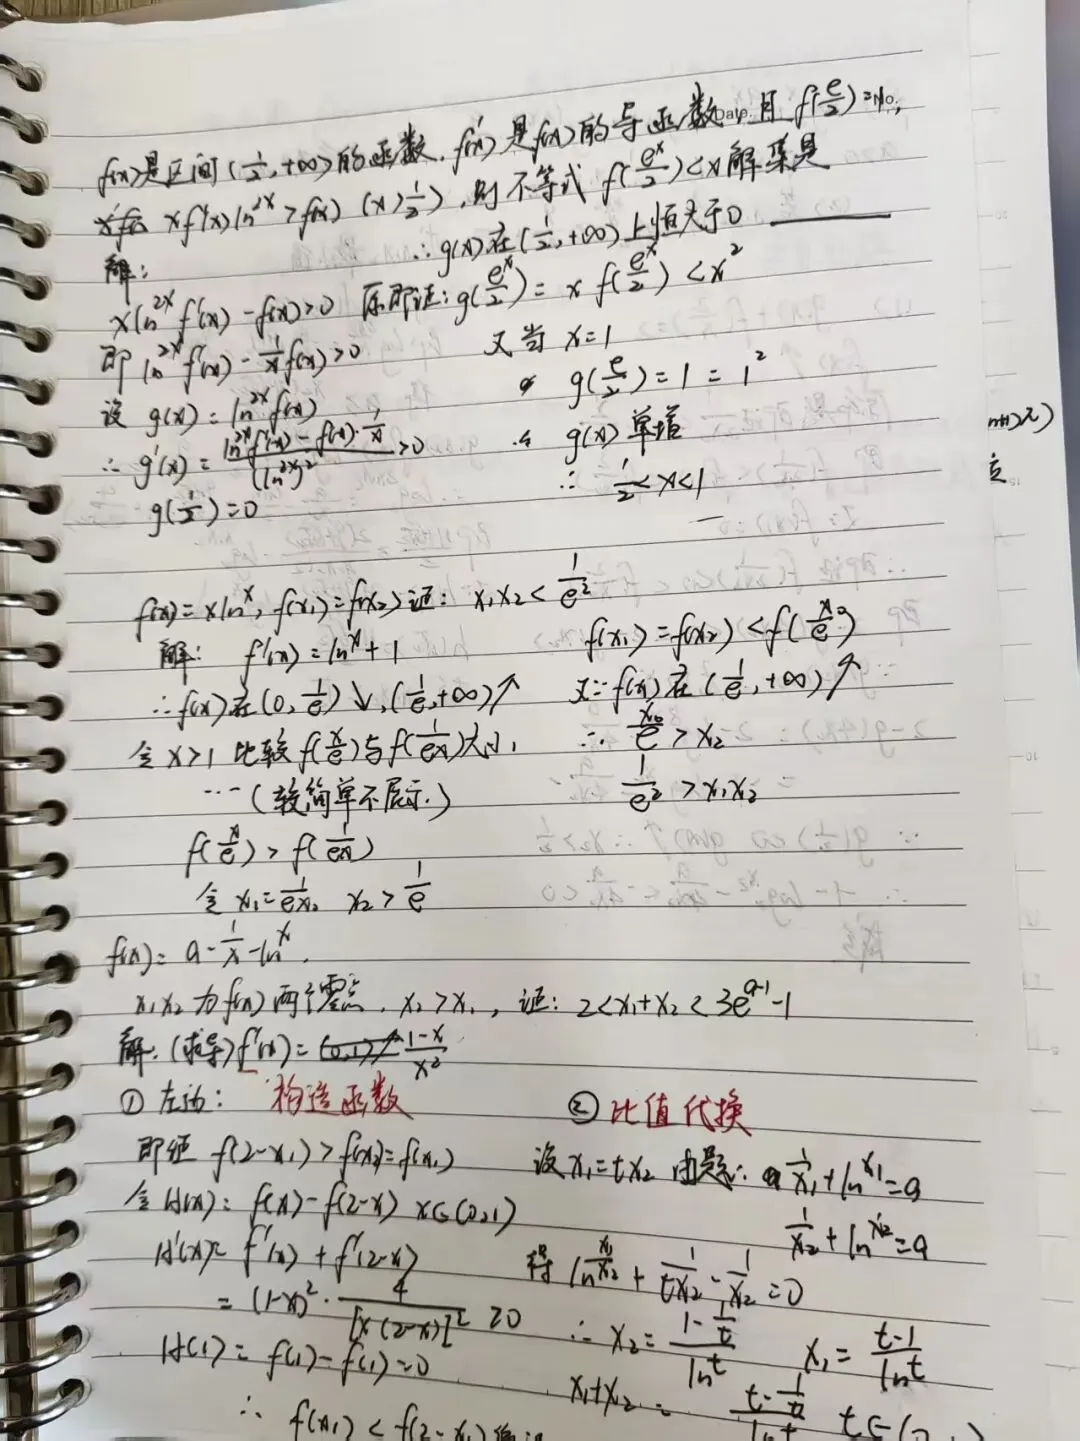 f(x)是区间(1/2,+∞)的函数.f'(x)是f(x)的导函数,且f(e/2)=1,
xf'(x)ln^2x>f(x) (x>1/2),则不等式f(e^x/2)<x解集是
解: ∴g(x)在(1/2,+∞)上恒大于0
xln^2x f'(x)-f(x)>0 原即证:g(e^x/2)=x f(e^x/2)<x^2
即ln^2x f'(x)-1/x f(x)>0 又当x=1
设g(x)=ln^2x f(x) g(e/2)=1=1^2
∴g'(x)=(ln^2x f'(x)-f(x)·1/x)/(ln^2x)^2>0 g(x)单增
g(1/2)=0 ∴1/2<x<1
f(x)=xln^x,f(x1)=f(x2)证:x1x2<1/e^2
解: f'(x)=ln^x+1 f(x1)=f(x2)<f(
∴f(x)在(0,1/e)↓,(1/e,+∞)↑ 又∵f(x)在(1/e,+∞)↑
令x>1比较f(x/e)与f(1/ex)大小, ∴ /e>x2
…(较简单不展示.) 1/e^2>x1x2
f(x/e)>f(1/ex)
令x1=1/ex, x2>1/e
f(x)=a-1/x-ln^x.
x1x2为f(x)两个零点,x2>x1,证:2<x1+x2<3e^a-1-1
解:(求导)f'(x)=(1-x)/x^2
①左边: 构造函数 ②比值代换
即证f(2-x1)>f(x2)=f(x1) 设x1=tx2由题:1/x1+ln^x1=a
令H(x)=f(x)-f(2-x) x∈(0,1) 1/x2+ln^x2=a
H'(x)=f'(x)+f'(2-x) 得ln^x1/x2+1/tx2-1/x2=0
=(1-x)^2·4/[x(2-x)]^2≥0 ∴x2=(1-1/t)/ln^t x1=(t-1)/ln^t
H(1)=f(1)-f(1)=0 x1+x2=(t-1/t)/ln^t t∈(0,
∴f(x1)<f(2-x1)